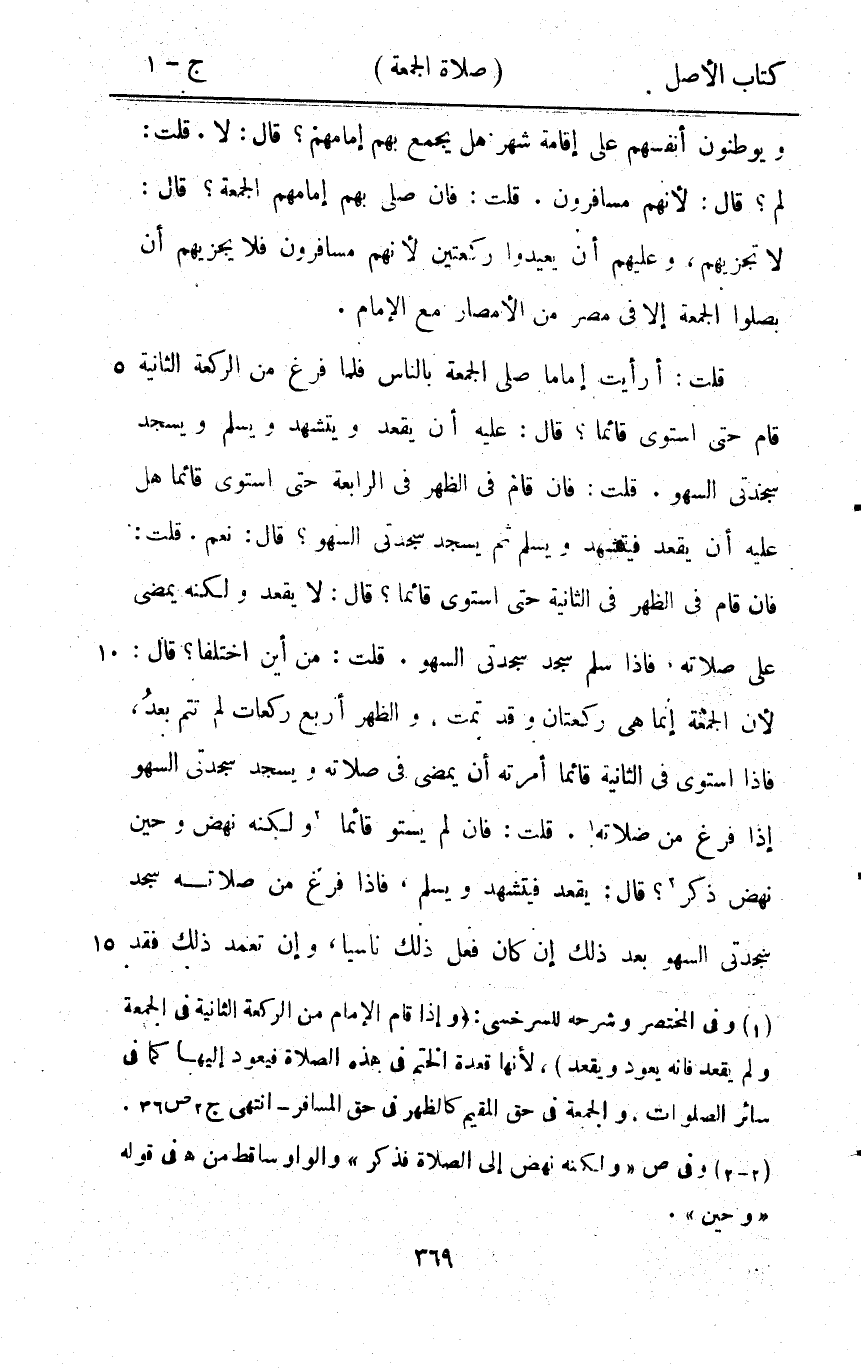 كتاب الأصل ( صلاة الجمعة ) ج - ١
و يوطنون أنفسهم على إقامة شهر هل يجمع بهم إمامهم ؟ قال : لا . قلت :
لم ؟ قال : لأنهم مسافرون . قلت : فان صلى بهم إمامهم الجمعة ؟ قال :
لا تجزيهم ، و عليهم أن يعيدوا ركعتين لأنهم مسافرون فلا يجزيهم أن
يصلوا الجمعة إلا فى مصر من الأمصار مع الإمام .
قلت : أ رأيت إماما صلى الجمعة بالناس فلما فرغ من الركعة الثانية ٥
قام حتى استوى قائما ؟ قال : عليه أن يقعد و يتشهد و يسلم و يسجد
سجدتى السهو . قلت : فان قام فى الظهر فى الرابعة حتى استوى قائما هل
عليه أن يقعد فيتشهد و يسلم ثم يسجد سجدتى السهو ؟ قال : نعم . قلت :
فان قام فى الظهر فى الثانية حتى استوى قائما ؟ قال : لا يقعد و لكنه يمضى
على صلاته ، فاذا سلم سجد سجدتى السهو . قلت : من أين اختلفا ؟ قال : ١٠
لأن الجمعة إنما هى ركعتان و قد تمت ، و الظهر أربع ركعات لم تتم بعدُ ،
فاذا استوى فى الثانية قائما أمرته أن يمضى فى صلاته و يسجد سجدتى السهو
إذا فرغ من صلاته١ . قلت : فان لم يستو قائما ٢و لكنه نهض و حين
نهض ذكر٢ ؟ قال : يقعد فيتشهد و يسلم ، فاذا فرغ من صلاتـــه سجد
سجدتى السهو بعد ذلك إن كان فعل ذلك ناسيا ، و إن تعمد ذلك فقد ١٥
(١) و فى المختصر و شرحه للسرخسى : ( و إذا قام الإمام من الركعة الثانية فى الجمعة
و لم يقعد فانه يعود و يقعد ) ، لأنها قعدة الختم فى هذه الصلاة فيعود إليهـا كما فى
سائر الصلوات . و الجمعة فى حق المقيم كالظهر فى حق المسافر - انتهى ج ٢ ص ٣٦ .
(٢-٢) و فى ص « و لكنه نهض إلى الصلاة فذكر » والواو ساقط من ه فى قوله
« و حين » .
٣٦٩